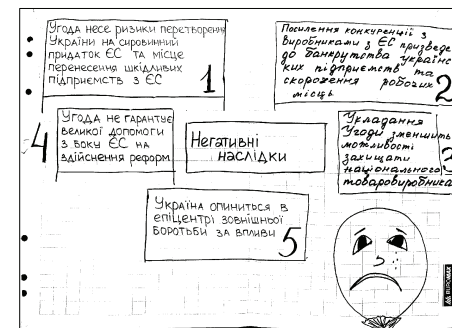 Угода несе ризики перетворення
України на сировинний
придаток ЄС та місце
перенесення шкідливих
підприємств з ЄС
1
Посилення конкуренції з
виробниками з ЄС призведе
до банкрутства українс
ких підприємств та
скорочення робочих
місць
2
4
Угода не гарантує
великої допомоги
з боку ЄС на
здійснення реформ
Негативні
наслідки
Укладання
Угоди зменшить
можливості
захищати
національного
товаровиробника
3
Україна опиниться в
епіцентрі зовнішньої
боротьби за впливи
5
BUROMAX